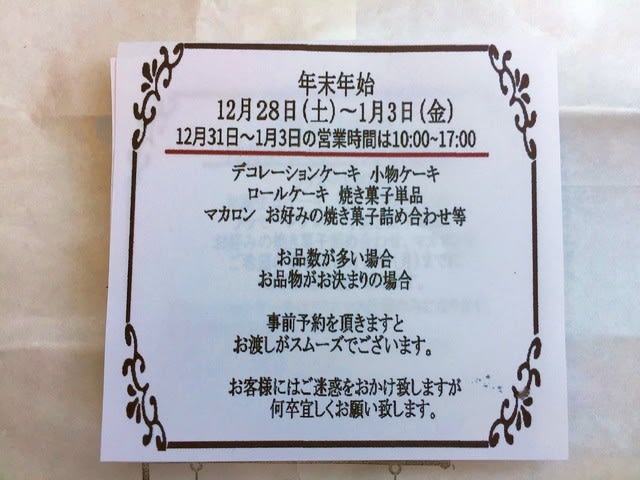 年末年始
12月28日(土)～1月3日(金)
12月31日～1月3日の営業時間は10:00~17:00
デコレーションケーキ 小物ケーキ
ロールケーキ 焼き菓子単品
マカロン お好みの焼き菓子詰め合わせ等
お品数が多い場合
お品物がお決まりの場合
事前予約を頂きますと
お渡しがスムーズでございます。
お客様にはご迷惑をおかけ致しますが
何卒宜しくお願い致します。